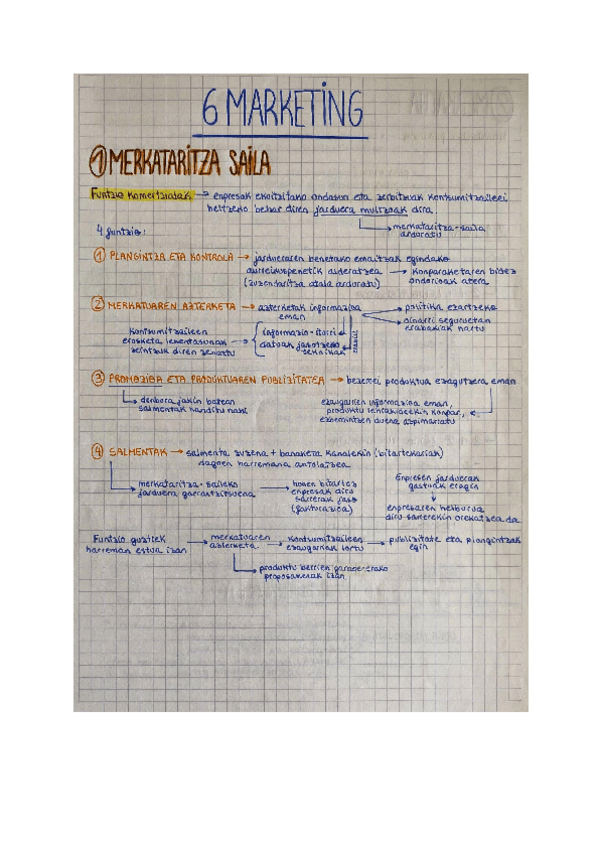 6 MARKETING
1 MERKATARITZA SAILA
Funtzio komertzialak → enpresak ekoitzitako ondasun eta zerbitzuak kontsumitzaileei
heltzeko behar diren jarduera multzoak dira
→ merkataritza-saila
arduratu
4 funtzio:
1 PLANGINTZA ETA KONTROLA → jardueraren benetako emaitzak egindako
aurreikuspenetik alderatzea → konparaketaren bidez
(zuzendaritza atala arduratu) ondorioak atera
2 MERKATUAREN AZTERKETA → azterketak informazioa → politika ezartzeko
eman → oinarri seguruetan
erabakiak hartu
kontsumitzaileen
erosketa lehentasunak → { informazio-iturri
zeintzuk diren zehaztu datuak jasotzeko
teknikak
3 PROMOZIOA ETA PRODUKTUAREN PUBLIZITATEA → bezeroei produktua ezagutzera eman
→ denbora jakin batean
salmentak handitu nahi
ezaugarrien informazioa eman,
produktu lehiakideekin konpar.,
4 SALMENTAK → salmenta zuzena + banaketa kanalekin (bitartekariak)
dagoen harremana antolatzea
→ merkataritza-saileko → honen bitartez
jarduera garrantzitsuena enpresak diru
sarrerak jaso
(fakturazioa)
Enpresen jarduerak
gastuak eragin
↓
enpresaren helburua
diru sarrerekin orekatzea da
Funtzio guztiek → merkatuaren → kontsumitzaileen → publizitate eta plangintzak
harreman estua izan azterketa ezaugarriak lortu egin
→ produktu berrien garapenerako
proposamenak izan